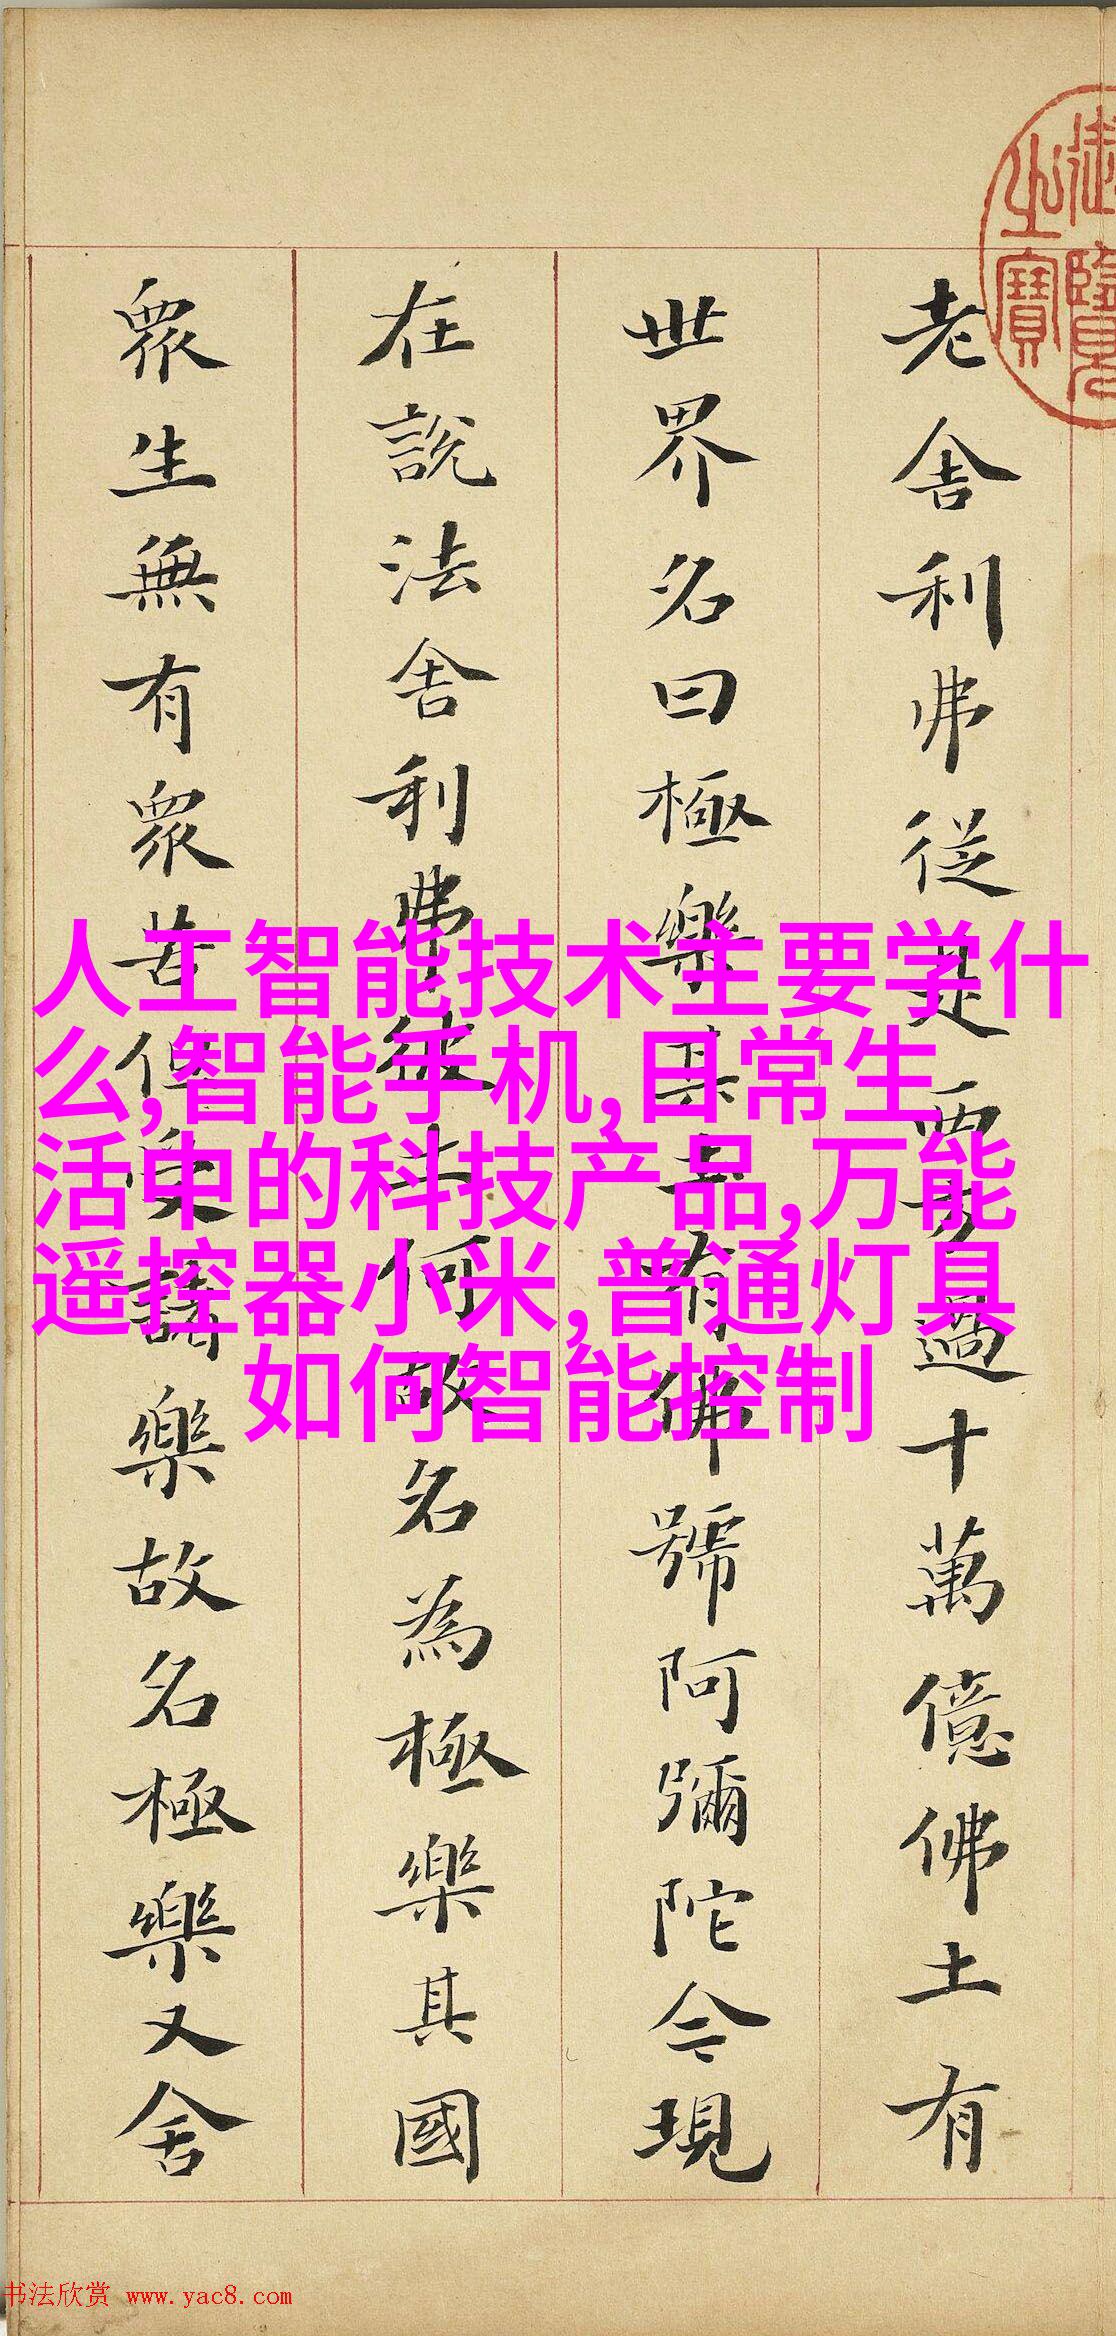 御覽
之寶
老舍利弗從是西方過十萬億佛土有
世界名曰極樂其土有佛號阿彌陀今現
在說法舍利弗彼土何故名為極樂其國
眾生無有眾苦但受諸樂故名極樂又舍
人工智能技术主要学什
么,智能手机,日常生
活中的科技产品,万能
遥控器小米,普通灯具
如何智能控制
书法欣赏 www.yac8.com